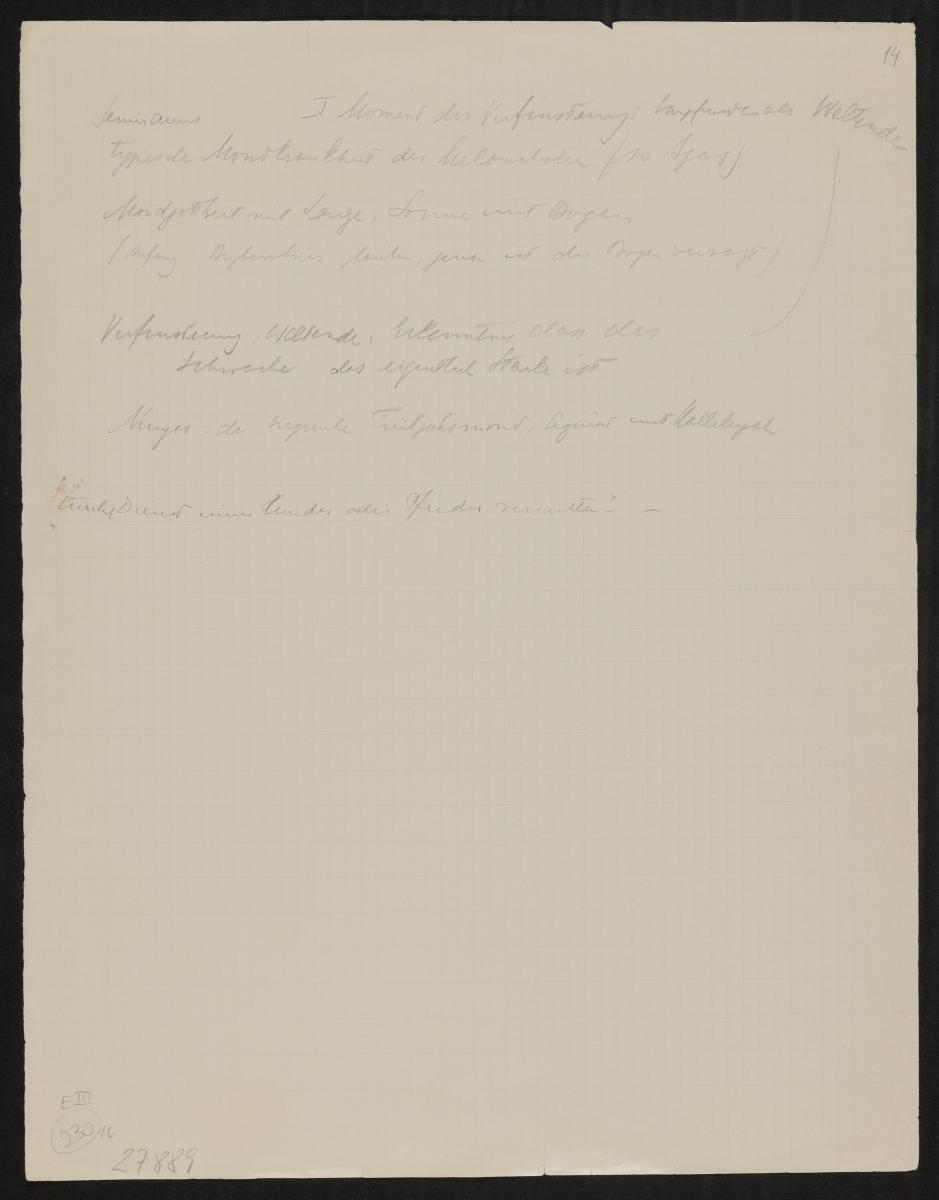 14
Semiramis I Moment der Verfinsterung: empfunden als Weltende
typische Mondkrankheit der Melancholie (so Ajas)
Mondgottheit mit Lanze, Sonne mit Bogen
(Anfang: Bergbewohner glauben, jener ist der Bogen versagt)
Verfinsterung, Weltende: Erkenntnis dass das
Schwache das eigentlich Starke ist
Ninyas: der siegreiche Frühjahrsmond, begrüsst mit Hallelujah
Dienst eines Hundes oder Pferdes
E III
230/16
27889